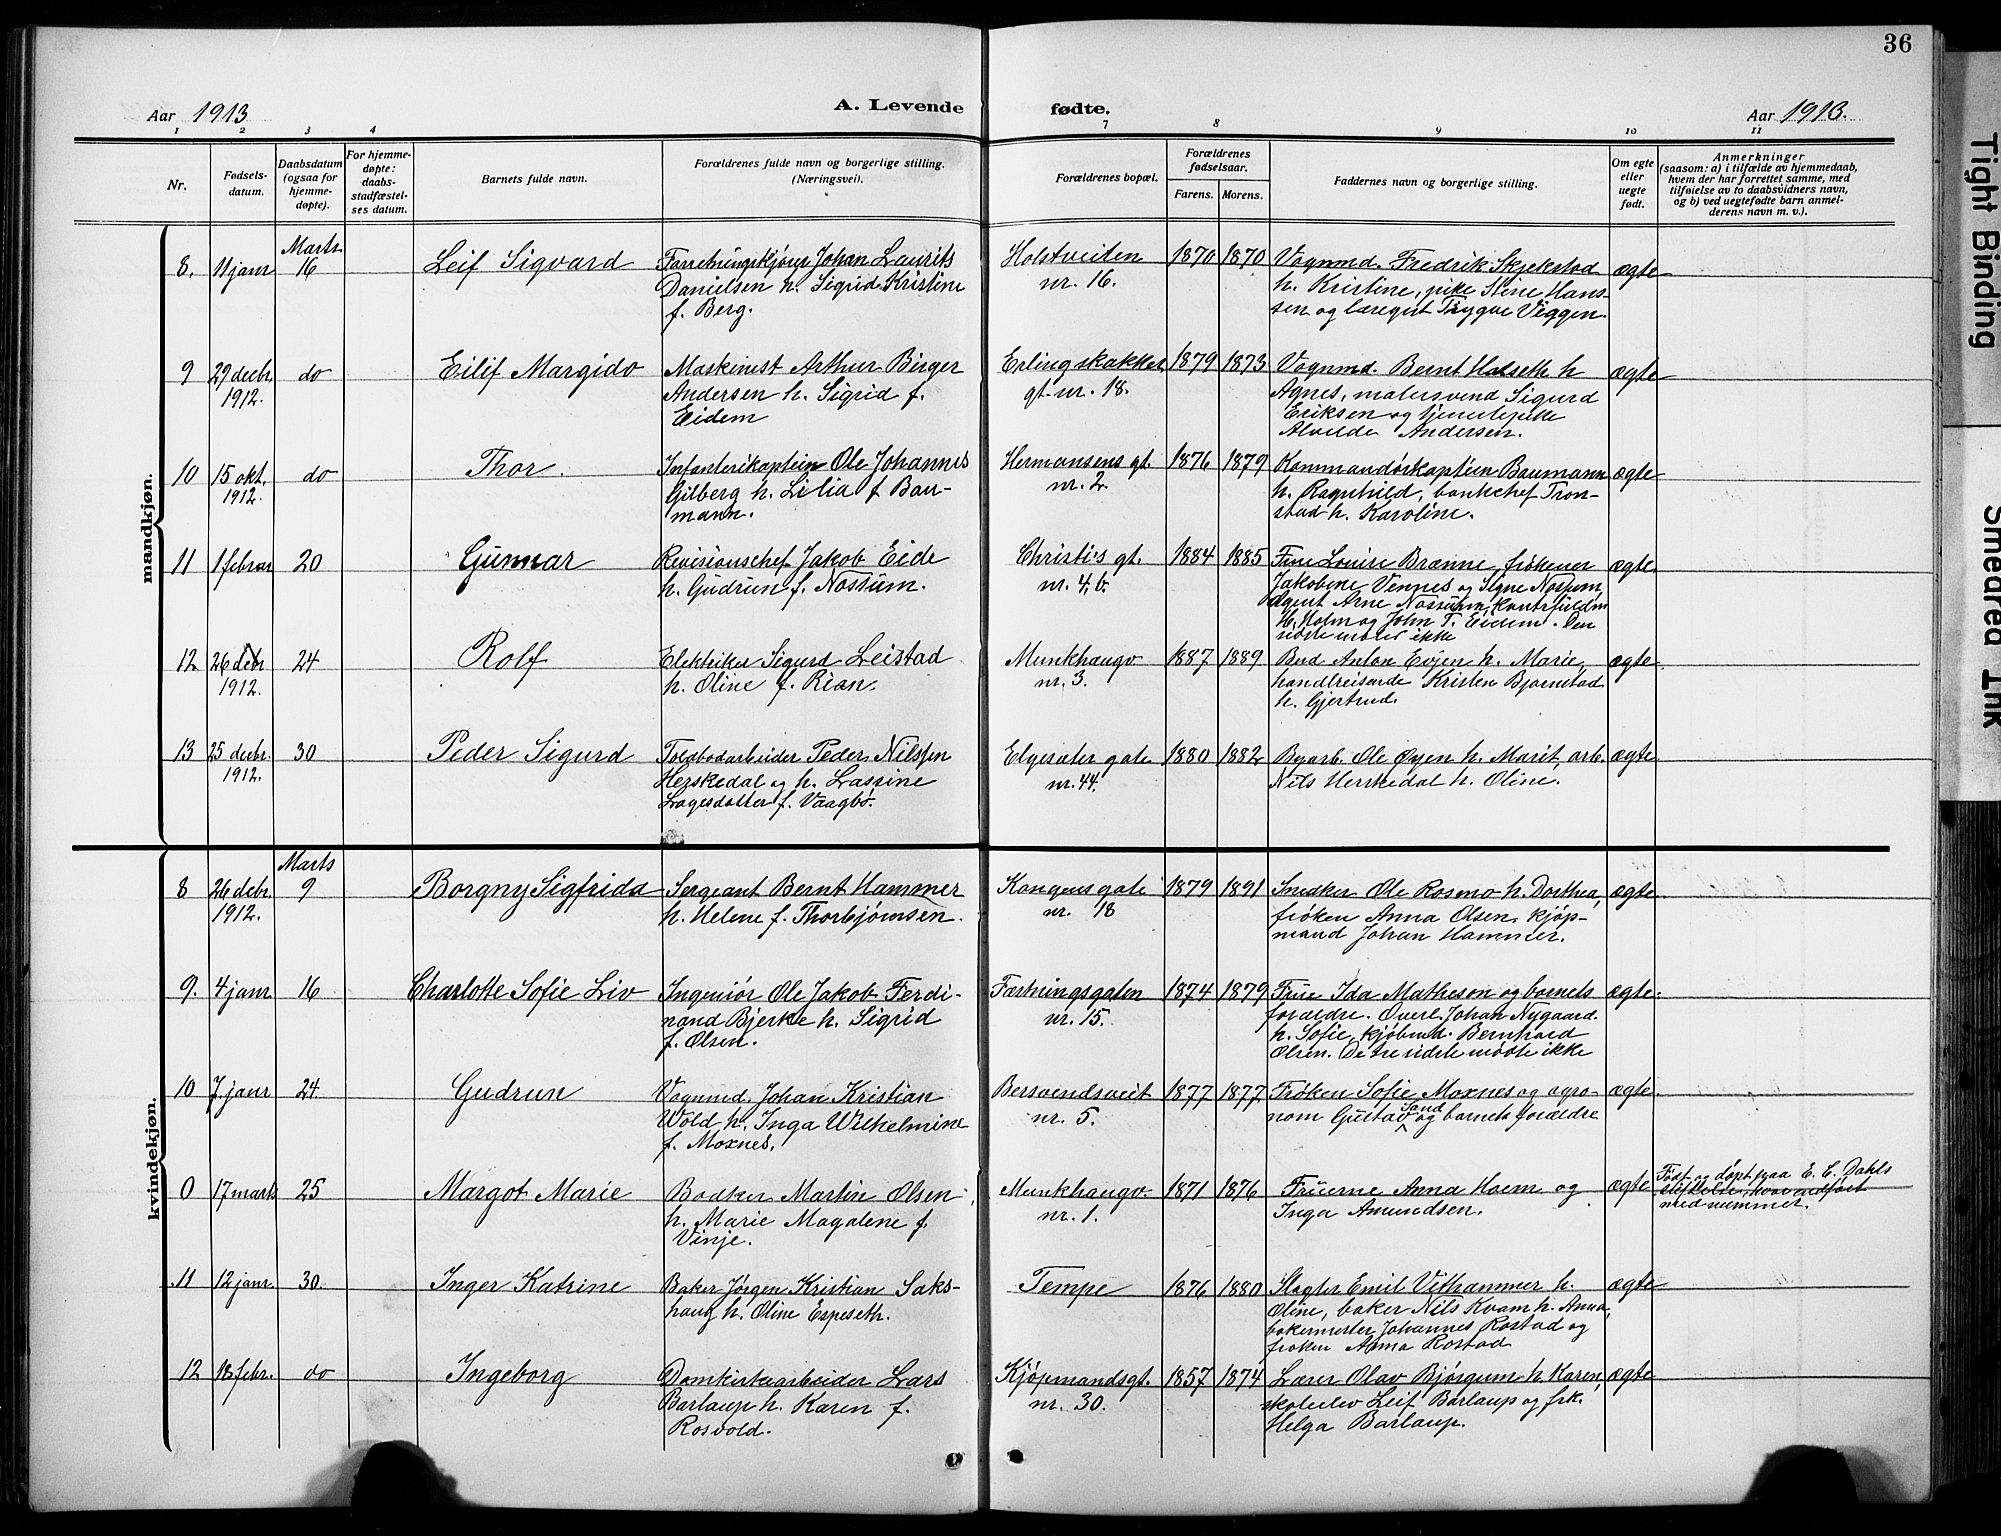 36
Aar 1913
A. Levende
fødte.
Aar 1913.
1 2 3 4 7 8 9 10 11
Nr.
Fødsels-
datum.
Daabsdatum
(ogsaa for
hjemme-
døpte).
For hjemme-
døpte:
daabs-
stadfæstel-
ses datum.
Barnets fulde navn.
Forældrenes fulde navn og borgerlige stilling.
(Næringsvei).
Forældrenes bopæl.
Forældrenes
fødselsaar.
Farens. Morens.
Faddernes navn og borgerlige stilling.
Om egte
eller
uegte
født.
Anmerkninger
(saasom: a) i tilfælde av hjemmedaab,
hvem der har forrettet samme, med
tilføielse av to daabsvidners navn,
og b) ved uegtefødte barn anmel-
derens navn m. v.).
mandkjøn.
Marts
8. 11 janr 16 Leif Sigvard Forretningskjører Johan Laurits Holstveiten 1870 1870 Vognmd. Fredrik Skjekstad ægte
Danielsen h. Sigrid Kristine nr. 16. h. Kristine, pike Stine Hans-
f. Berg. sen og læregut Trygve Viggen.
9 29 decbr. do Eilif Margido Maskinist Arthur Birger Erling skakkes 1879 1873 Vognmd. Bernt Halseth h ægte
1912. Andersen h. Sigrid f. gt. nr. 18. Agnes, malersvend Sigurd
Eidem Eriksen og tjenestepike
Alvilde Andersen.
10 15 okt. do Thor. Infanterikaptein Ole Johannes Hermansens gt. 1876 1879 Kommandørkaptein Baumann ægte
1912. Gilberg h. Lilia f Bau- nr. 2. h. Ragnhild, bankchef Tron-
mann. stad h. Karoline.
11 1 febrar 20 Gunnar Revisionschef Jakob Eide Christi's gt. 1884 1885 Frue Louise Brænne, frøkener ægte.
h. Gudrun f. Nossum. nr. 4, b. Jakobine Vennes og Signe Nossum,
agent Arne Nossum, kontrfuldm
H. Holm og John T. Eidem. Den
sidste møter ikke
12 26 debr 24 Rolf Elektriker Sigurd Leistad Munkhaugv 1887 1889 Bud Anton Evjen h. Marie, ægte.
1912. h. Oline f. Rian. nr. 3. handlreisende Kristen Bjørnstad
h. Gjertrud.
13 25 decbr. 30 Peder Sigurd Toldbodarbeider Peder Nilssen Elgesæter gate 1880 1882 Byarb. Ole Øyen h. Marit, arb. ægte.
1912. Herskedal og h. Lassine nr. 44. Nils Herskedal h. Oline.
Lagesdatter f. Vaagbø.
kvindekjøn.
Marts
8 26 debr. 9 Borgny Sigfrida Sergeant Bernt Hammer Kongens gate 1879 1891 Snedker Ole Rosmo h. Dorthea, ægte.
1912. h. Helene f. Thorbjørnsen. nr. 18 frøken Anna Olsen, kjøp-
mand Johan Hammer.
9. 4 janr 16 Charlotte Sofie Liv Ingeniør Ole Jakob Ferdi- Færtningsgaten 1874 1879 Frue Ida Matheson og barnets ægte.
nand Bjerke h. Sigrid nr. 15. forældre. Overl. Johan Nygaard
f. Olsen. h. Sofie, kjøbmd. Bernhard
Olsen. De tre sidste møtte ikke
10 7 janr 24 Gudrun Vognmd. Johan Kristian Bersvendsveit 1877 1877 Frøken Sofie Moxnes og agro- ægte.
Wold h. Inga Wilhelmine nr. 5. nom Gustav Sand og barnets forældre
f. Moxnes.
0 17 marts 25 Margot Marie Bødker Martin Olsen Munkhaugv. 1871 1876 Fruerne Anna Hoem og ægte Født og døpt paa E. C. Dahls
h. Marie Magdalene f. nr. 1. Inga Amundsen. stiftelse, hvor indført
Vinje. med nummer.
11 12 janr. 30. Inger Katrine Baker Jørgen Kristian Saks- Tempe 1876 1880 Slagter Emil Vithammer h. ægte
haug h. Oline Espeseth. Oline, baker Nils Kvam h. Anna,
bakermester Johannes Rostad og
frøken Anna Rostad
12 18 febr. do Ingeborg Domkirkearbeider Lars Kjøpmandsgt. 1857 1874 Lærer Olav Bjørgum h. Karen, ægte
Barlaup h. Karen f. nr. 30. skoleelev Leif Barlaup og frk.
Rosvold. Helga Barlaup.
Tight Binding
Smeared Ink